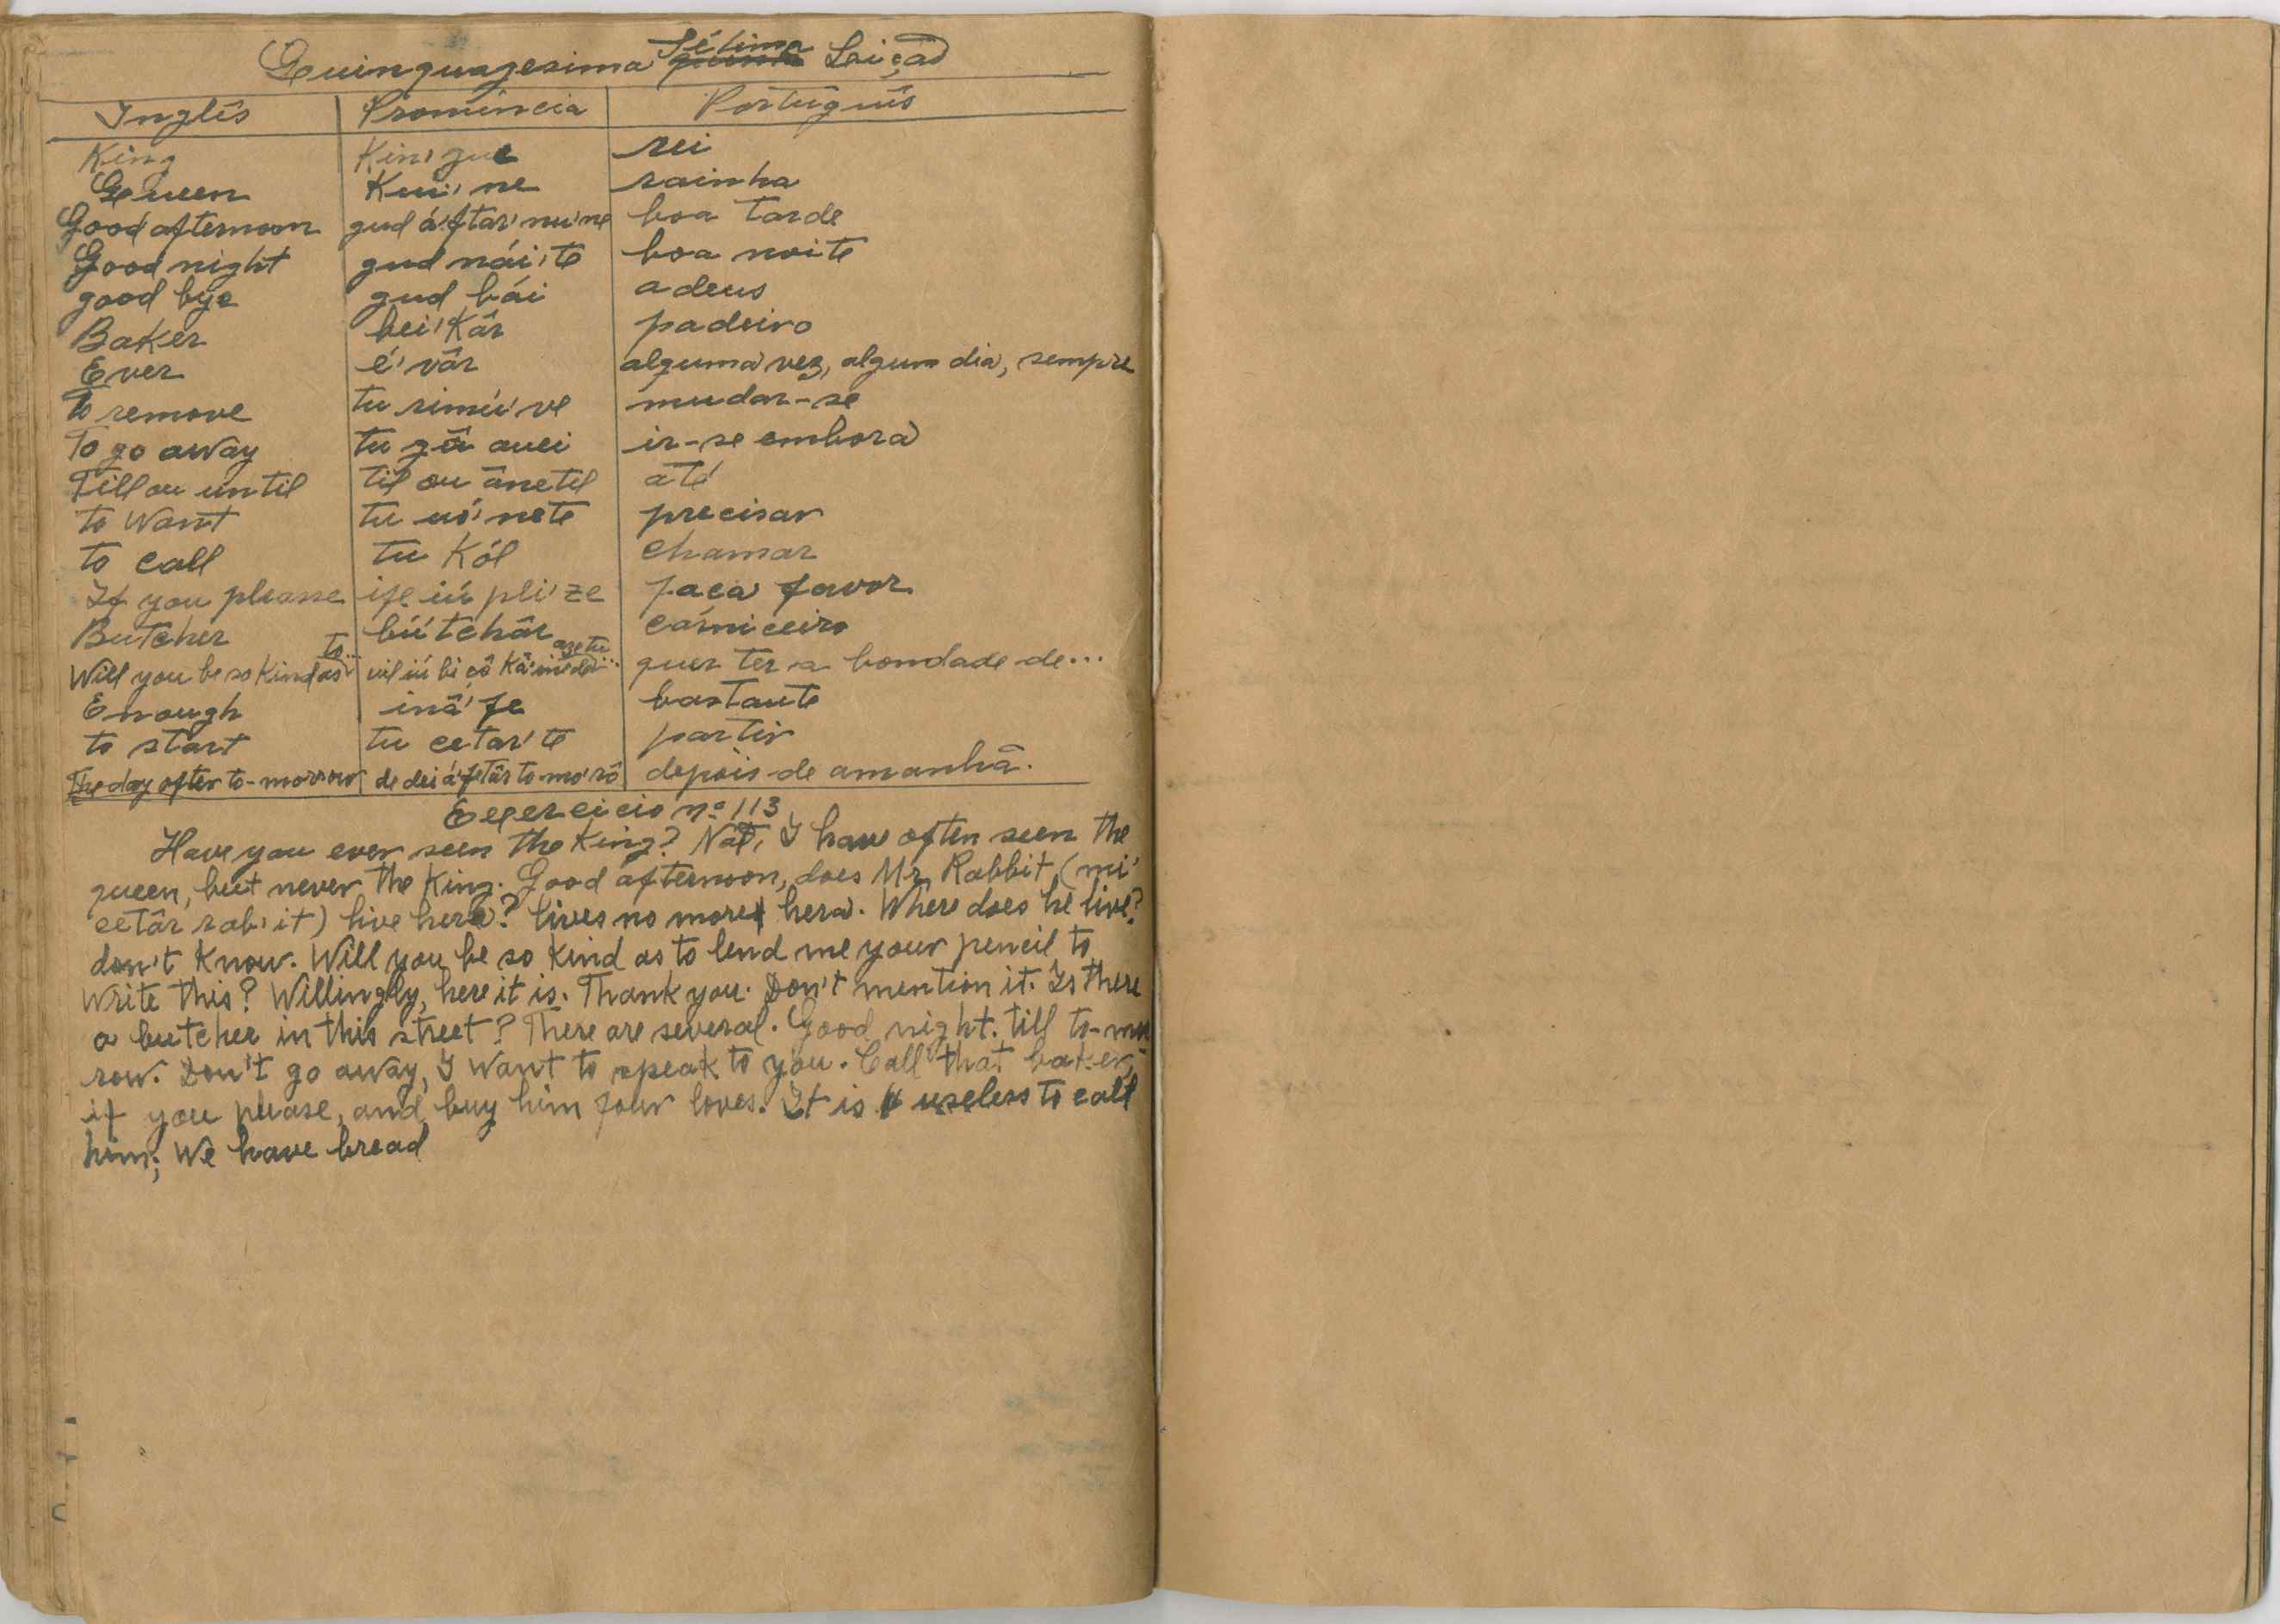 Quinquagesima Sétima Leição
Inglês Pronúncia Português
King Kin'gue rei
Queen Kuu'ne rainha
Good afternoon gud á'ftar'nu'ne boa tarde
Good night gud nái'te boa noite
good bye gud bái adeus
Baker bei'Kâr padeiro
Ever é'vâr alguma vez, algum dia, sempre
To remove tu rimú've mudar-se
To go away tu gâ auei ir-se embora
Till ou until til ou ânetil até
to Want tu uó'nete precisar
to call tu Kól chamar
If you pleasse ife iú pli'ze faca favor
Butcher bútchâr cárniceiro
Will you be so Kind as to... uil iú bi çô Kâ'inede azetu... quer ter a bondade de...
Enough inâ'fe bastante
to start tu cetar'te partir
The day after to-morrow de dei á'fetâr to-mo'rô depois de amanhã.
Exercicio nº 113
Have you ever seen the King? Not, I have often seen the
queen, but never the King. Good afternoon, does Mr Rabbit (mi'
cetâr rab'it) live here? lives no more here. Where does he live?
don't Know. Will you be so Kind as to lend me your pencil to
write this? Willingly, here it is. Thank you. Don't mention it. Is there
a butcher in this street? There are several. Good night. till to-mor
row. Don't go away, I want to speak to you. Call that baker,
if you please, and buy him four loves. It is useless to call
him; We have bread